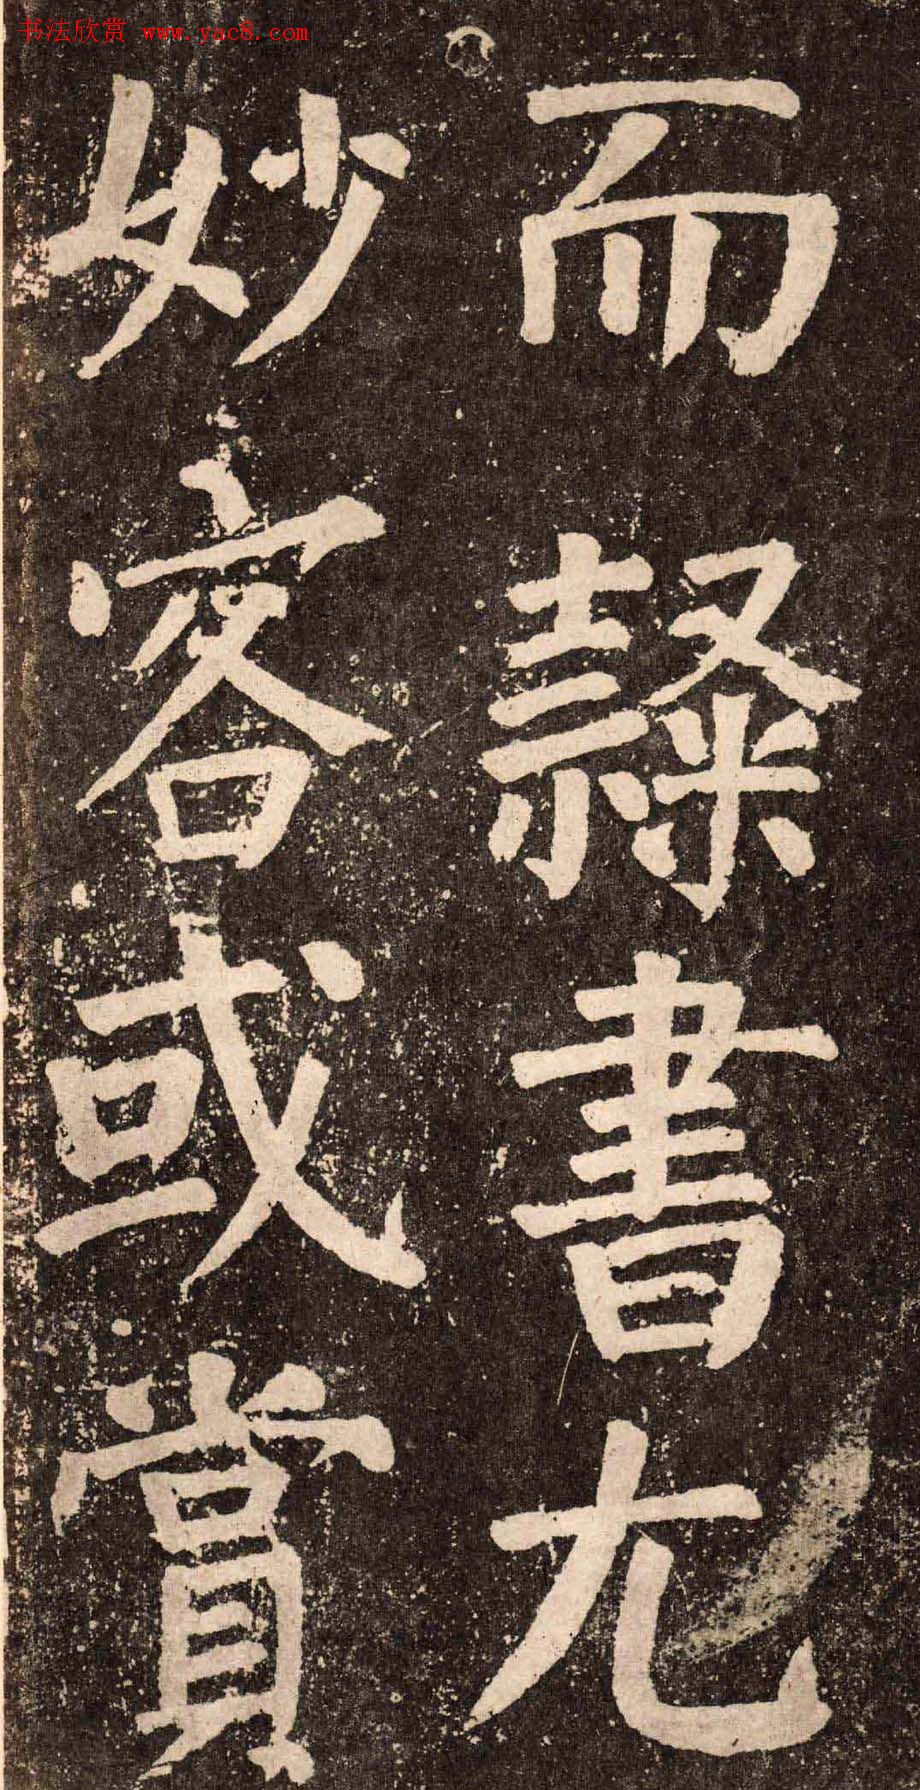 书法欣赏 www.yac8.com
而隸書尤
妙客或賞